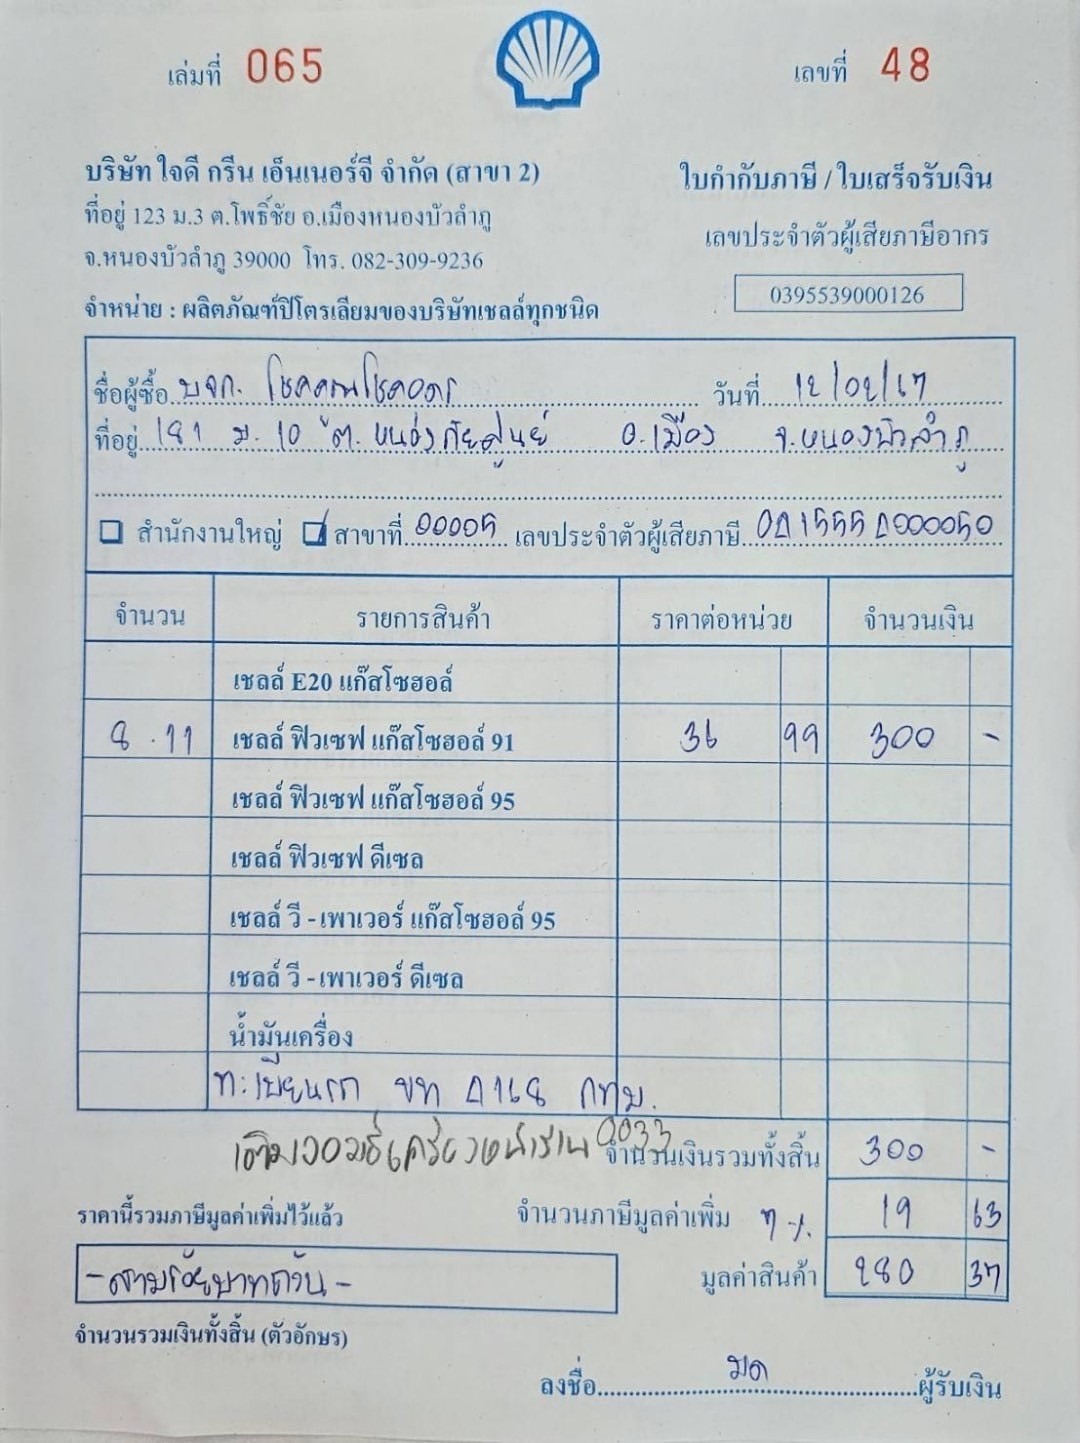 เล่มที่ 065
เลขที่ 48
บริษัท ใจดี กรีน เอ็นเนอร์จี จำกัด (สาขา 2)
ใบกำกับภาษี / ใบเสร็จรับเงิน
ที่อยู่ 123 ม.3 ต.โพธิ์ชัย อ.เมืองหนองบัวลำภู
เลขประจำตัวผู้เสียภาษีอากร
จ.หนองบัวลำภู 39000 โทร. 082-309-9236
0395539000126
จำหน่าย : ผลิตภัณฑ์ปิโตรเลียมของบริษัทเชลล์ทุกชนิด
ชื่อผู้ซื้อ บจก. วันที่ 12/02/67
ที่อยู่ 181 ม.10 ต. หนองภัยศูนย์ อ.เมือง จ.หนองบัวลำภู
สำนักงานใหญ่ สาขาที่ 00005 เลขประจำตัวผู้เสียภาษี
จำนวน รายการสินค้า ราคาต่อหน่วย จำนวนเงิน
เชลล์ E20 แก๊สโซฮอล์
8.11 เชลล์ ฟิวเซฟ แก๊สโซฮอล์ 91 36 99 300 -
เชลล์ ฟิวเซฟ แก๊สโซฮอล์ 95
เชลล์ ฟิวเซฟ ดีเซล
เชลล์ วี - เพาเวอร์ แก๊สโซฮอล์ 95
เชลล์ วี - เพาเวอร์ ดีเซล
น้ำมันเครื่อง
ทะเบียนรถ กทม.
0033
จำนวนเงินรวมทั้งสิ้น 300 -
ราคานี้รวมภาษีมูลค่าเพิ่มไว้แล้ว
จำนวนภาษีมูลค่าเพิ่ม 7 % 19 63
- สามร้อยบาทถ้วน -
มูลค่าสินค้า 280 37
จำนวนรวมเงินทั้งสิ้น (ตัวอักษร)
ลงชื่อ มด ผู้รับเงิน